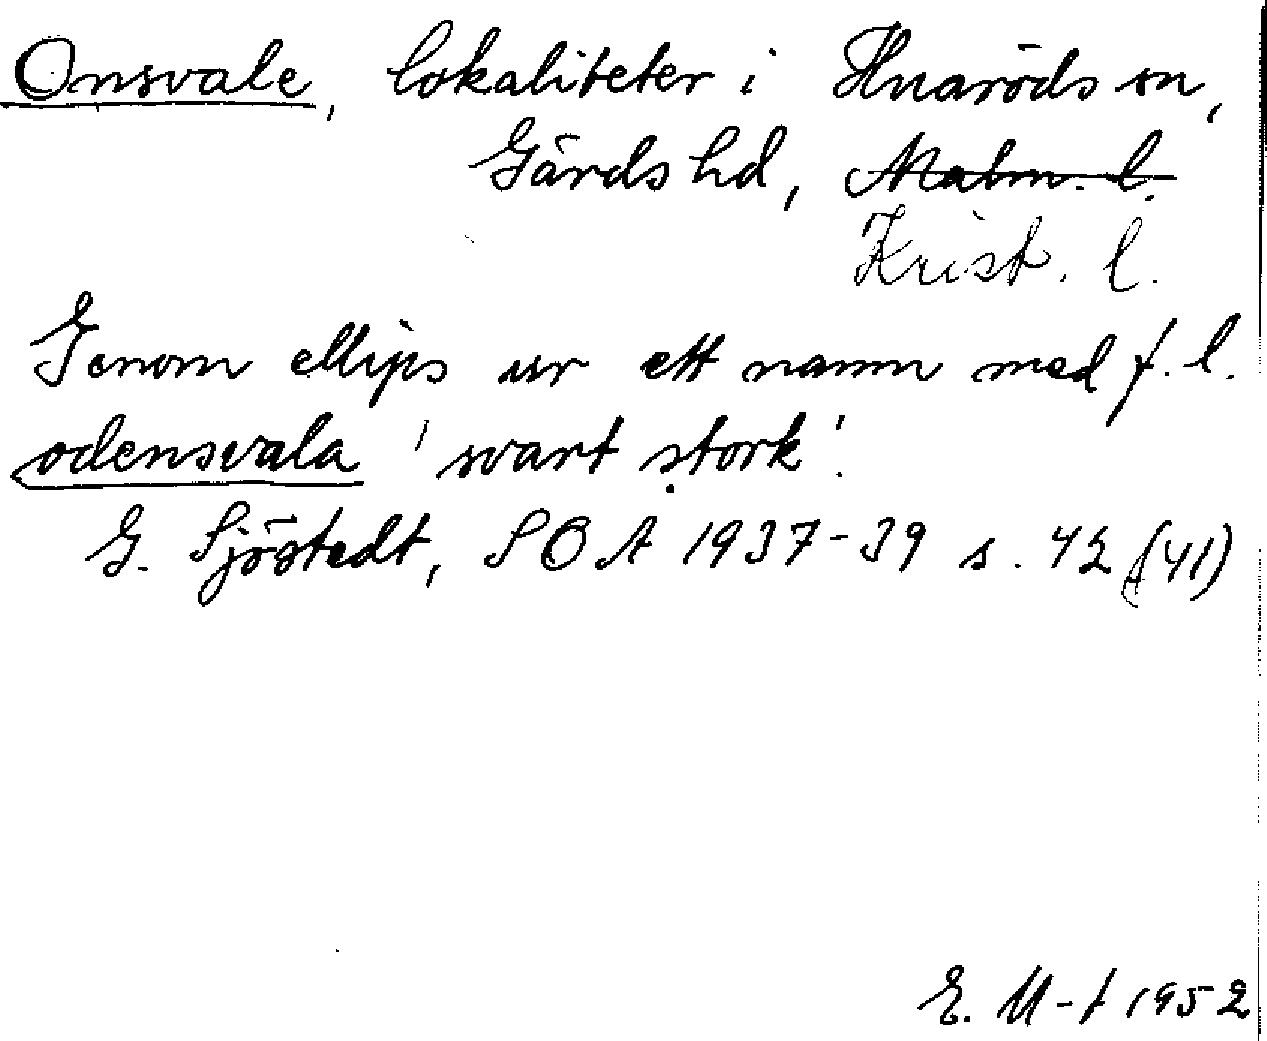 Onsvale, lokaliteter i Huaröds sn,
Gärds hd, Malm. l.
Krist. l.
Genom ellips ur ett namn med f. l.
odensvala 'svart stork'.
G. Sjöstedt, SOÅ 1937-39 s. 42 (41)
E. M-t 1952